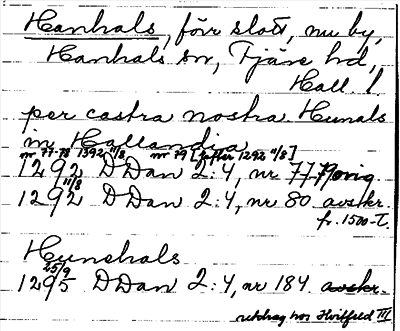 Hanhals, förr slott, nu by,
Hanhals sn, Fjäre hd,
Hall. l.
per castra nostra Hunals
in Hallandia
nr 77-78 1292 11/8, nr 79 [efter 1292 11/8]
1292 DDan 2:4, nr 77 Orig
1292 11/8 DDan 2:4, nr 80 avskr.
fr. 1500-t.
Hunehals
1295 25/9 DDan 2:4, nr 184. avskr.
utdrag hos Hvitfeld III